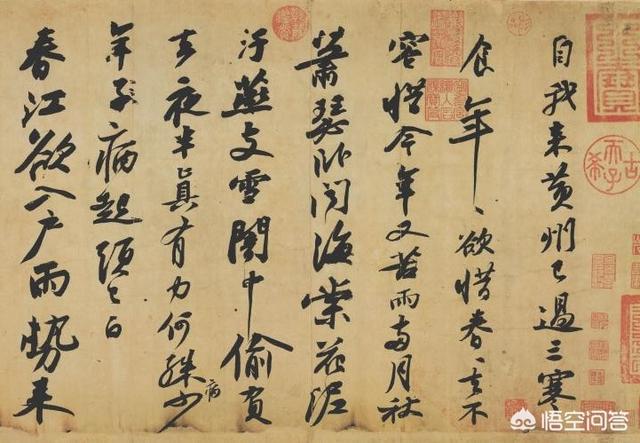 自我来黄州已過三寒
食年〻欲惜春〻去不
容惜今年又苦雨兩月秋
蕭瑟卧聞海棠花泥
汙燕支雪闇中偷負
去夜半真有力何殊少
病
年子病起頭已白
春江欲入户雨勢来
古希天子
悟空问答